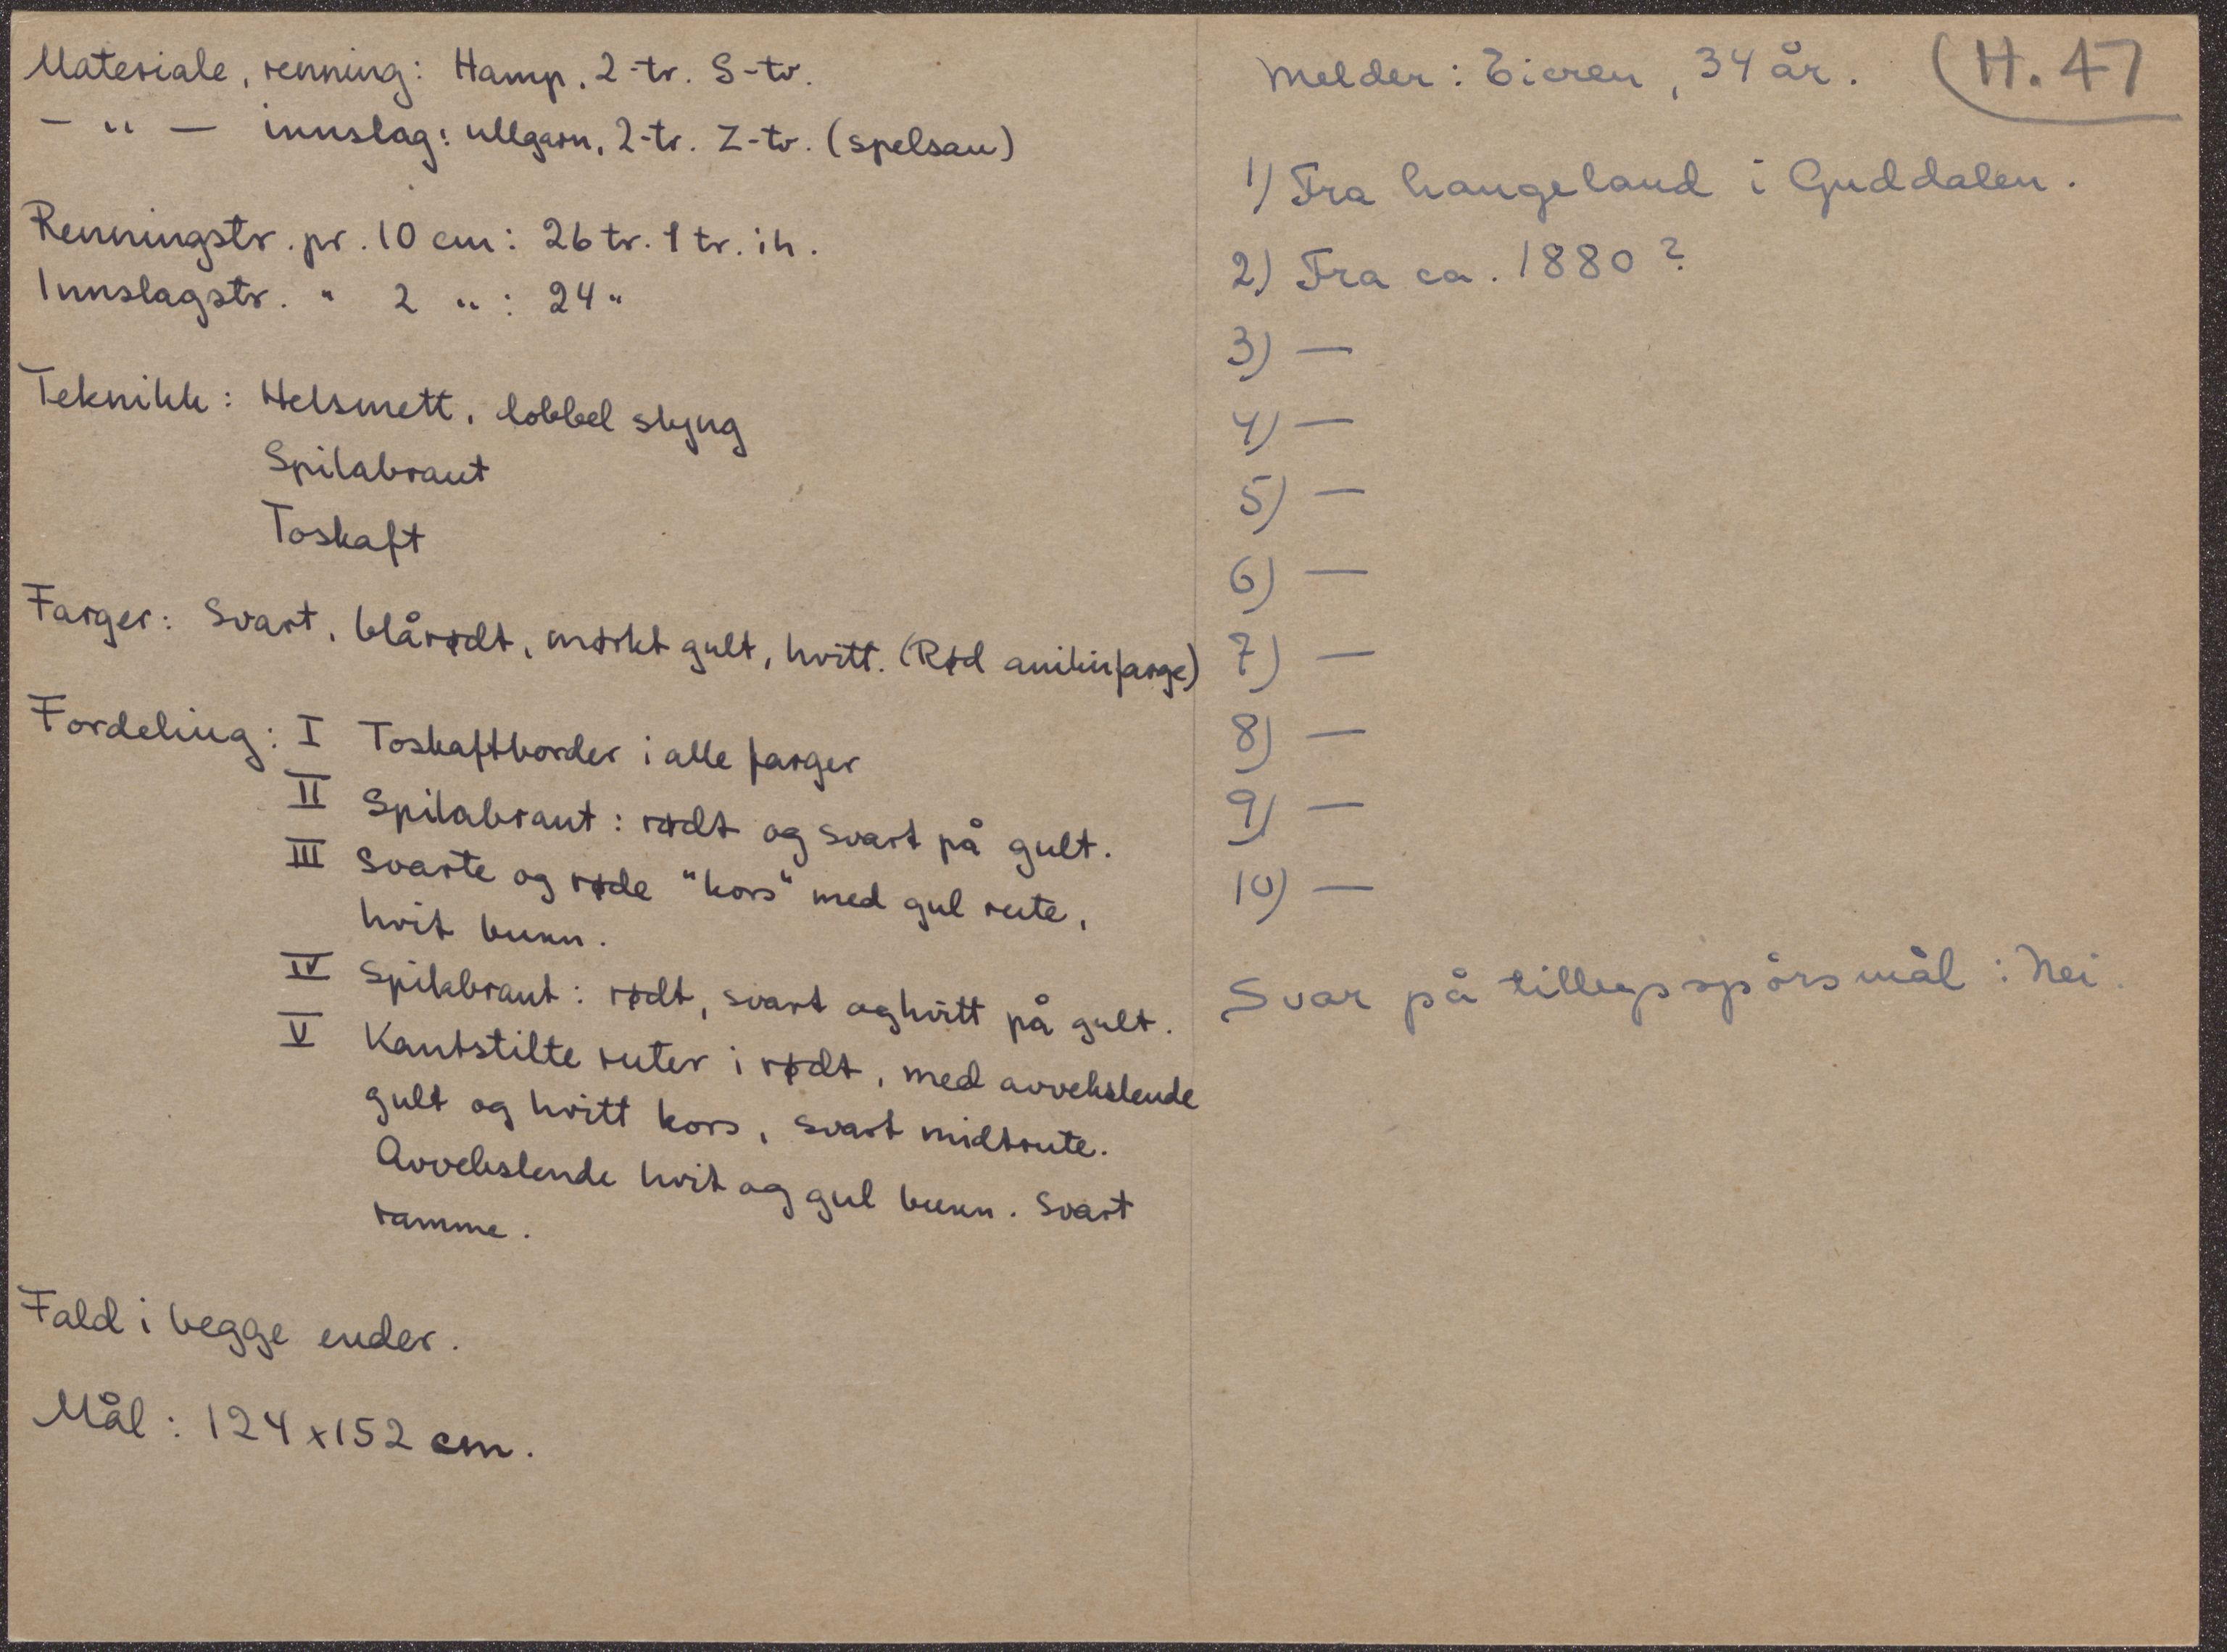 Materiale, renning: Hamp, 2-tr. S-tv.
- " - innslag: ullgarn, 2-tr. Z-tv. (spelsau)
Renningstr. pr. 10 cm: 26 tr. 1 tr. i h.
Innslagstr. " 2 " : 24 "
Teknikk: Helsmett, dobbel slyng
Spilabraut
Toskaft
Farger: Svart, blårødt, mørkt gult, hvitt. (Rød anilinfarge)
Fordeling: I Toskaftborder i alle farger
II Spilabraut: rødt og svart på gult.
III Svarte og røde "kors" med gul rute,
hvit bunn.
IV Spilabraut: rødt, svart og hvitt på gult.
V Kantstilte ruter i rødt, med avvekslende
gult og hvitt kors, svart midtrute.
Avvekslende hvit og gul bunn. Svart
ramme.
Fald i begge ender.
Mål: 124 x 152 cm.
(H. 47
Melder: Eieren, 34 år.
1) Fra Haugeland i Guddalen.
2) Fra ca. 1880?
3) —
4) —
5) —
6) —
7) —
8) —
9) —
10) —
Svar på tilleggsspørsmål: Nei.